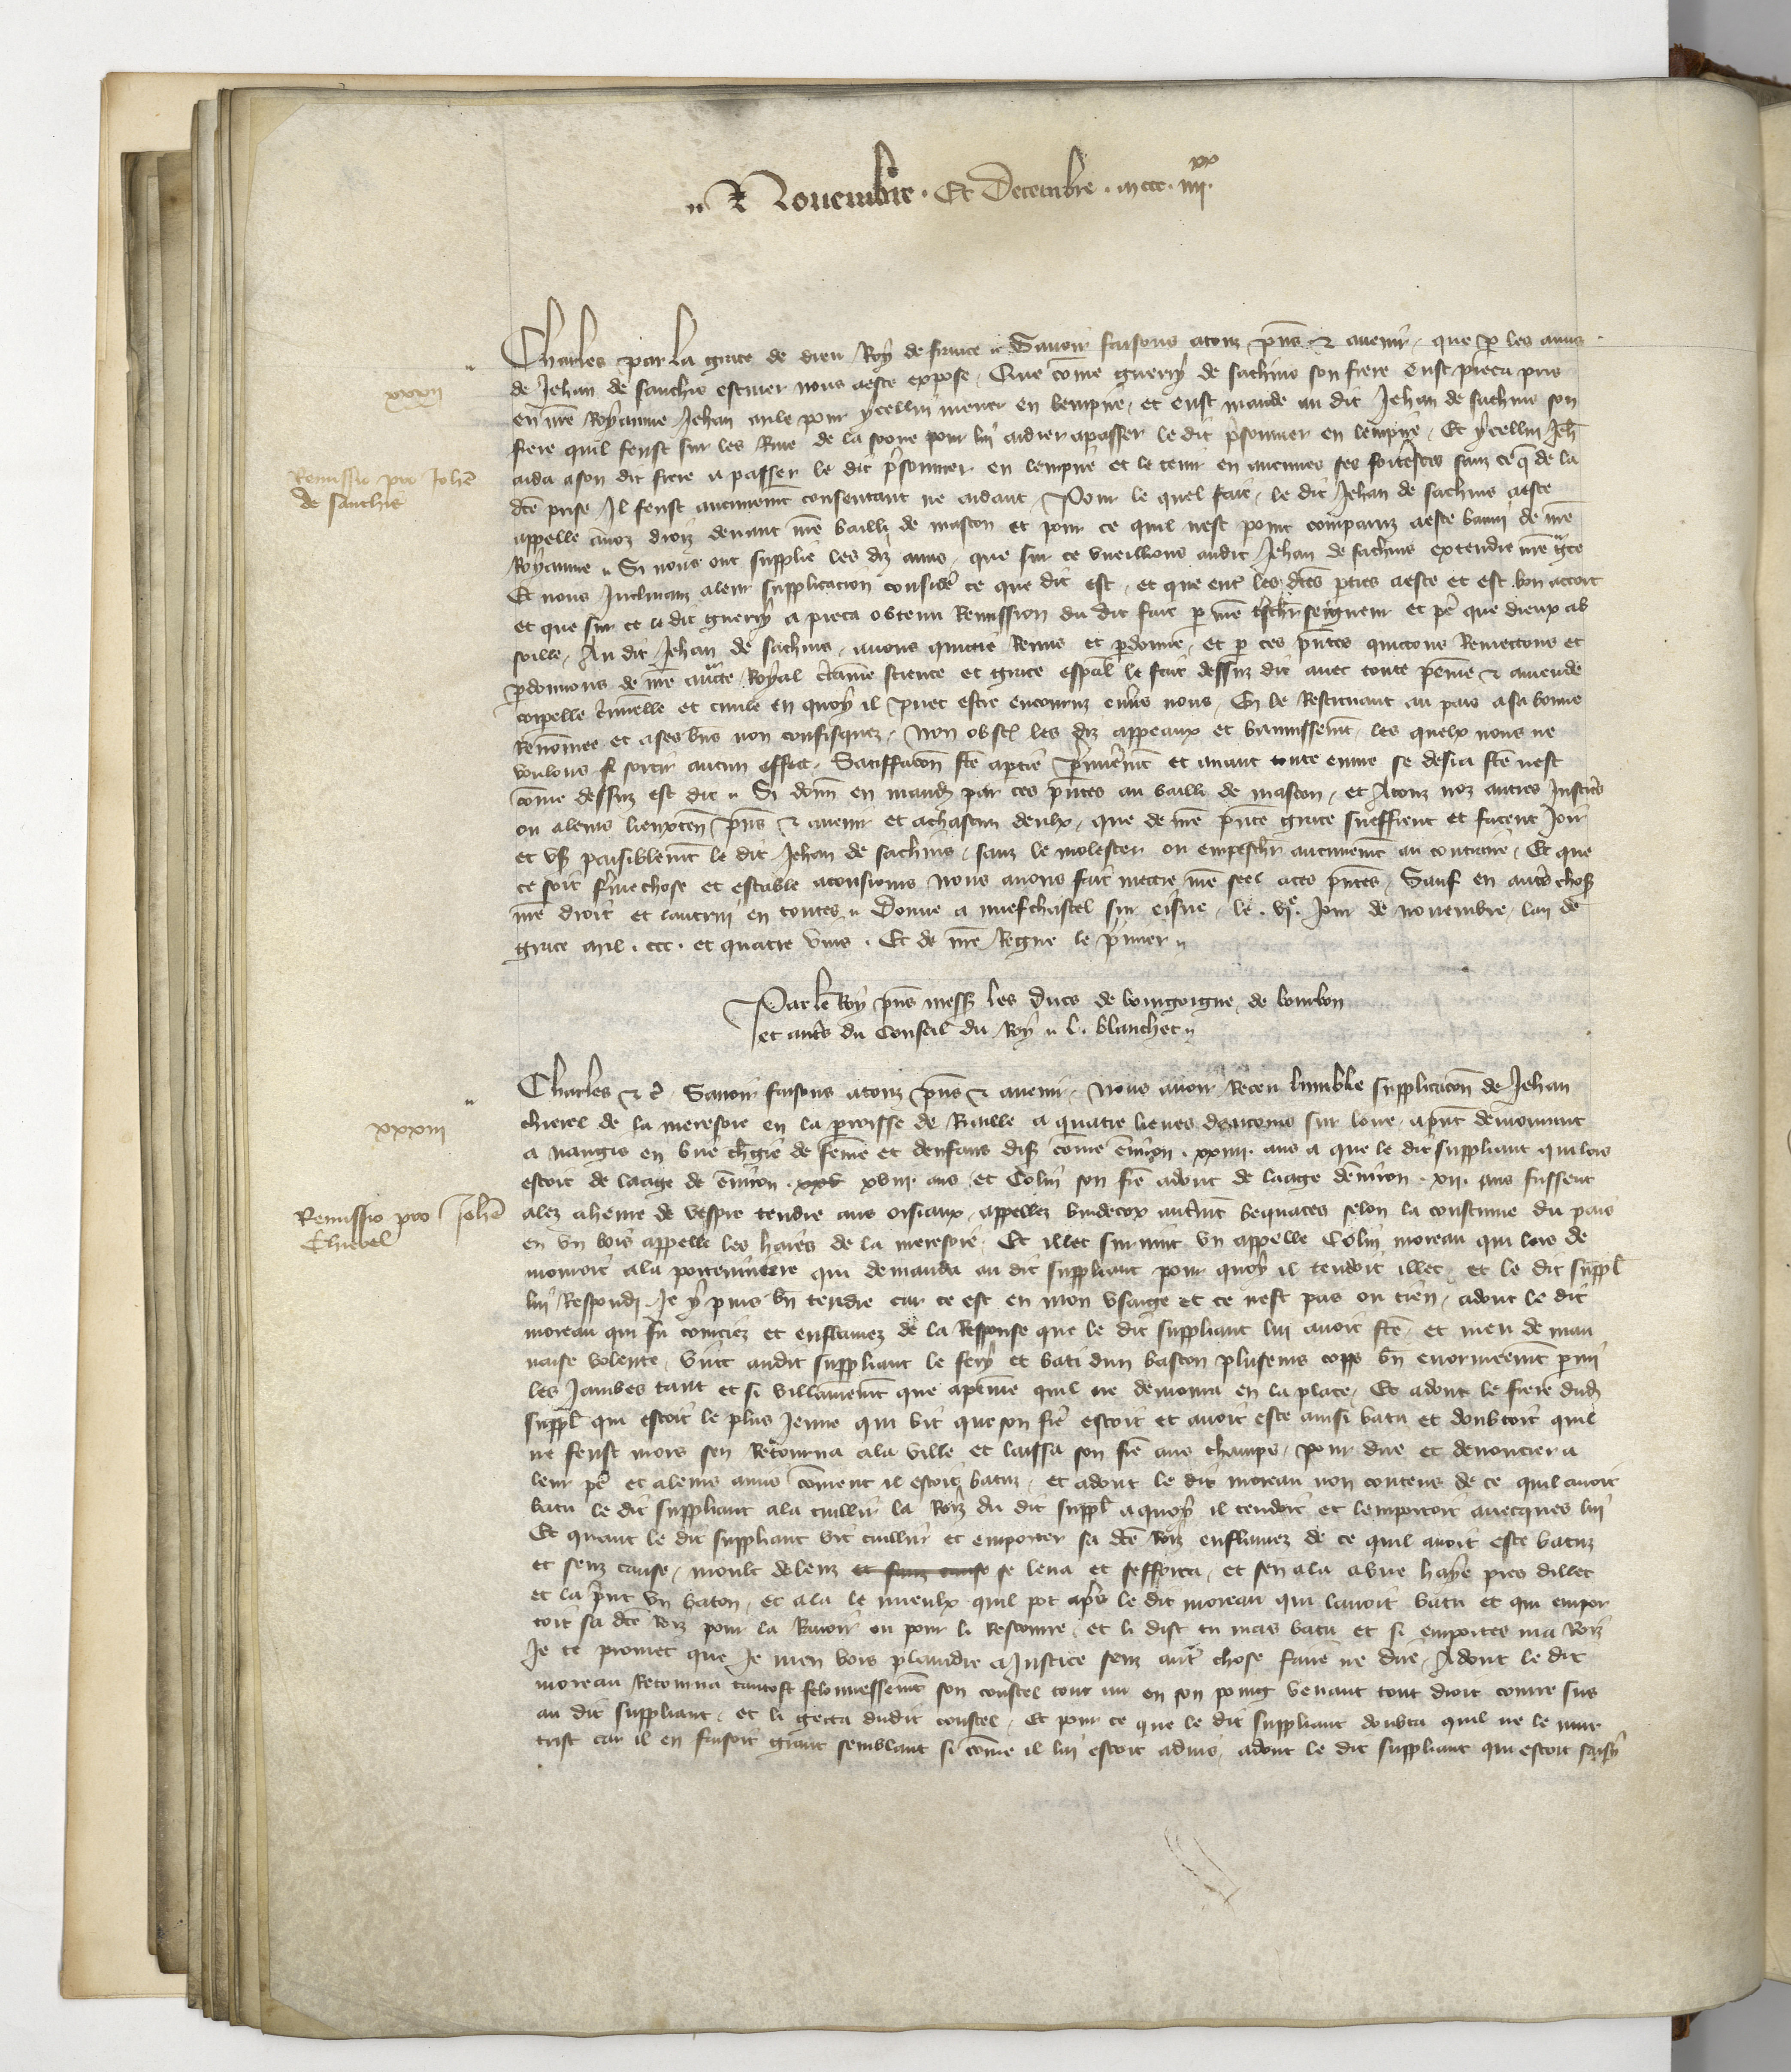 Nouembre . Et Decembre . m ccc . iiii xx
Charles par la grace de dieu Roy de france Sauoir faisons atouz pns & auenir que p les amis
xxxii
de Jehan de sanchis escuier nous aeste expose Que come guerry de sachins son frere eust pieca pris
en nre Royaume Jehan pour ycellui mener en lempire et eust mande au dit Jehan de sachins son
frere quil feust sur les Riue de la soone pour lui aidier apasser le dit prisonnier en lempire Et ycellui Jeh
Remissio pro Johe
de sanchis
aida ason dit frere a passer le dit prisonnier en lempire et le tenir en aucunes ses forteresces sanz ce q de la
dce prise Il feust aucunemt consentant ne aidant Pour le quel fait le dit Jehan de sachins aeste
appelle anoz droiz deuant nre bailli de mascon et pour ce quil nest point comparuz aeste banni de nre
Royaume Si nous ont supplie les diz amis que sur ce vueillions audit Jehan de sachins extendre nre gce
Et nous Inclinanz aleur supplicacion consider ce que dit est et que entr les dces pties aeste et est bon accort
et que sur ce le dit guerry a pieca obtenu Remission du dit fait p nre tschr seigneur et pe que dieux ab
soille Au dit Jehan de sachins auons quittie Remis et pdonne et p ces pntes quittons Remettons et
pdonnons de nre aucte Royal certaine science et grace espal le fait dessuz dit auec toute peine & amende
corpelle criminelle et ciuile en quoy il puet estre encouruz enuers nous En le Restituant au pais asa bonne
Renomee et ases bns non confisquez Non obst les diz appeaux et bannissemt les quelx nous ne
voulons sortir aucun effect Satiffacon fte aptie premieremt et auant toute euure se desia fte nest
come dessuz est dit Si donn en mand par ces pntes au bailli de mascon et Atouz noz autres Justiciers
ou aleurs lieuxten pns & auenir et achascun deulx que de nre pnte grace sueffrent et facent Joir
et vs paisiblemt le dit Jehan de sachins sanz le molester ou empeschr aucunemt au contraire Et que
ce soit ferme chose et estable atousiours Nous auons fait mettre nre seel aces pntes Sauf en autres choses
nre droit et lautrui en toutes Donne a nuefchastel sur eisne le . vi e . Jour de nouembre lan de
grace mil . ccc . et quatre vins . Et de nre Regne le premier
Par le Roy pns mess les ducs de bourgoigne de bourbon
et autres du Conseil du Roy L . blanchet
Charles & c Sauoir faisons atouz pns & auenir Nous auoir Receu lumble supplicacon de Jehan
xxxiii
chierel de la meresoie en la parroisse de Riaille a quatre lieues dancenis sur loire apnt demourant
a nangis en brie chgie de feme et denfans dis come enuiron . xxiiii . ans a que le dit suppliant qui lors
estoit de laage de enuiron xviii . ans et Colin son fre adont de laage denuiron . xii . ans fussent
Remissio pro Johe
Chierel
alez aheure de vespre tendre aus oisiaux appellez videcox autremt beguaces selon la coustume du pais
en vn bois appelle les haies de la meresoie Et illec suruint vn appelle Colin moreau qui lors de
mouroit ala qui demanda au dit suppliant pour quoy il tendoit illec et le dit suppl
lui Respondi Je y puis bn tendre car ce est en mon vsaige et ce nest pas ou tien adont le dit
moreau qui fu courciez et enflamez de la Response que le dit suppliant lui auoit fte et meu de mau
uaise volente vint audit suppliant le fery et bati dun baston plusieurs cops bn enormeemt parmi
les Jambes tant et si villainemt que apeine quil ne demoura en la place Et adont le frere dud
suppl qui estoit le plus Jeune qui vit que son fre estoit et auoit este ainsi batu et doubtoit quil
ne feust mors sen Retourna ala ville et laissa son fre aus champs pour dire et denoncier a
leur pe et aleurs amis coment il estoit batuz et adont le dit moreau non contens de ce quil auoit
batu le dit suppliant ala cuillir la Roiz du dit suppl aquoy il tendoit et lemportoit auecques lui
Et quant le dit suppliant vit cuillir et emporter sa dce Roiz enflamez de ce quil auoit este batuz
et senz cause moult dolenz et sanz cause se leua et sefforca et sen ala avne haye pres dillec
et la print vn baton et ala le mieulx quil pot apres le dit moreau qui lauoit batu et qui empor
toit sa dce Roiz pour la Rauoir ou pour li Rescourre et li dist tu mas batu et si emportes ma Roiz
Je te promet que Je men vois plaindre a Justice senz autre chose faire ne dire Adont le dit
moreau Retourna tantost felonnessemt son coustel tout nu en son poing venant tout droit courre sus
au dit suppliant et li gecta dudit coustel Et pour ce que le dit suppliant doubta quil ne le mur
trist car il en faisoit grant semblant si come il lui estoit aduis adont le dit suppliant qui estoit saisy